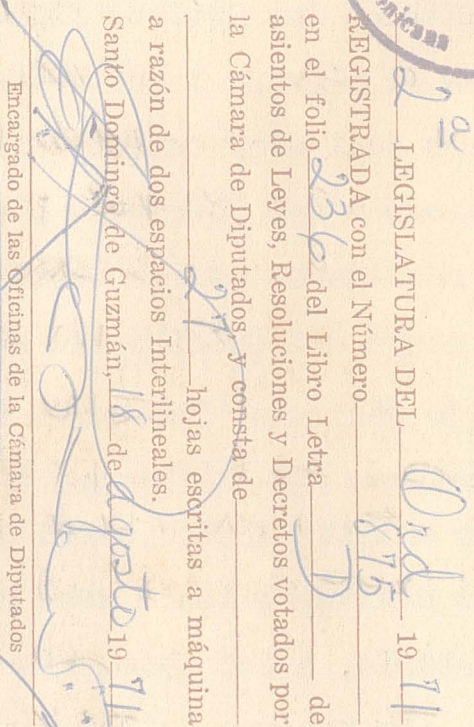 nicana
2ª LEGISLATURA DEL Ord 1971
REGISTRADA con el Número 875
en el folio 236 del Libro Letra D de
asientos de Leyes, Resoluciones y Decretos votados por
la Cámara de Diputados, y consta de
27 hojas escritas a máquina
a razón de dos espacios Interlineales.
Santo Domingo de Guzmán, 18 de agosto 1971
Encargado de las Oficinas de la Cámara de Diputados